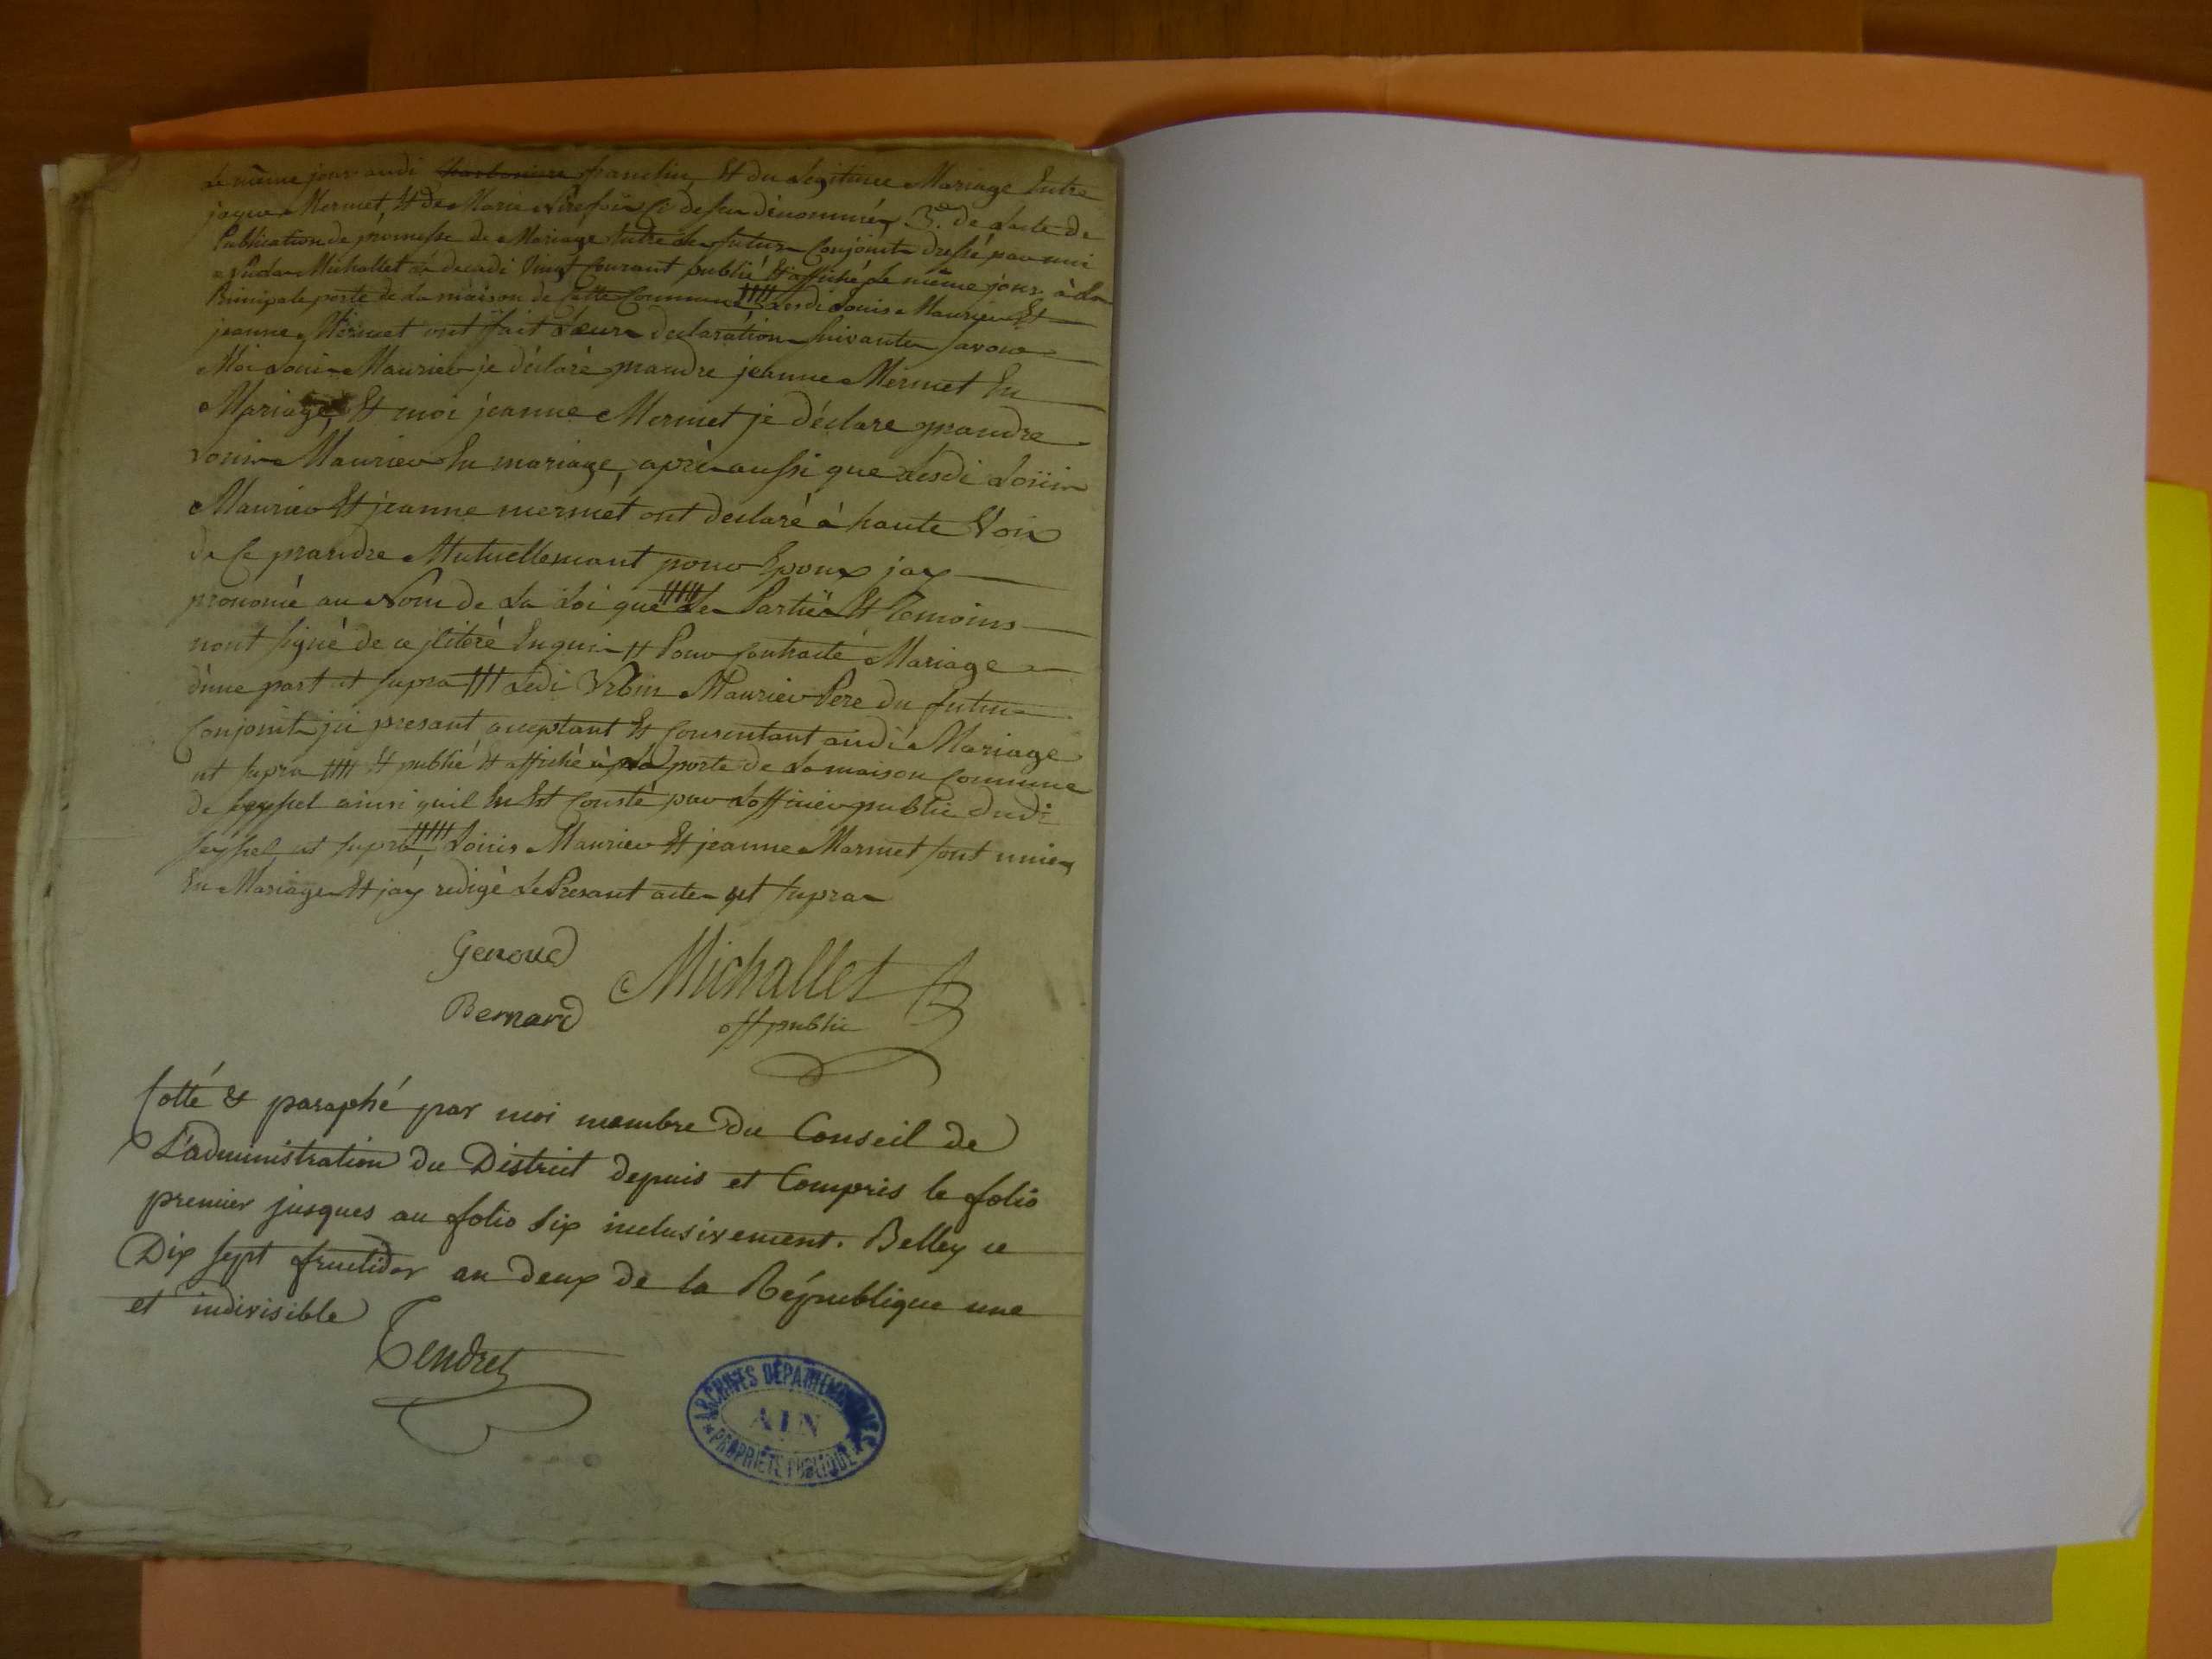 Le même jour audi franclin, Et du Légitime Mariage Entre
jaque Mermet, Et de Marie ci dessu dénommés, 3.e de Lacte de
Publication de promesse de Mariage Entre les futurs Conjoints dressé par moi
Michallet le decadi Vingt Courant publié Et affiché le même jour à la
Principale porte de La maison de Cette Commune †††† Lesdi Louis Maurier Et
jeanne Mermet ont fait Leurs declarations suivantes savoir
Moi Louis Maurier je déclare prandre jeanne Mermet En
Mariage, Et moi jeanne Mermet je déclare prandre
Louis Maurier En mariage, après aussi que Lesdi Loüis
Maurier Et jeanne mermet ont declaré à haute Voix
de Ce prandre Mutuellemant pour Epoux jay
prononcé au Nom de La Loi que ††††† Les Partïes Et Temoins
nont signé de ce Enquis †† Pour Contracté Mariage
d'une part ut supra ††† Ledi Urbin Maurier Pere du futur
Conjoint ici presant aceptant Et Consentant audi Mariage
ut supra †††† Et publié Et affiché à la porte de La maison Commune
de seyssel ainsi quil En Est Consté par Lofficier public dudi
seyssel ut supra, ††††† Loüis Maurier Et jeanne Marmet sont unies
En Mariage Et jay redigé Le Presant acte ut supra
Genoud
Michallet
Bernard
off public
Cotté & paraphé par moi membre du Conseil de
L'administration du District depuis et Compris le folio
premier jusques au folio Six inclusivement. Belley ce
Dix sept fructidor an deux de la République une
et indivisible
Tendret
ARCHIVES DÉPARTEMENTALES
AIN
* PROPRIÉTÉ PUBLIQUE *